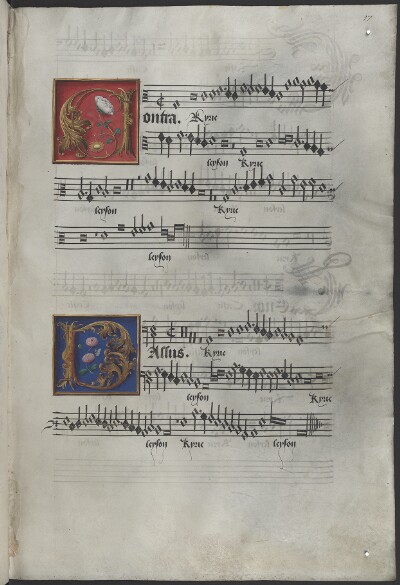 17
Contra. Kyrie
leyson Kyrie
leyson Kyrie
leyson
Bassus. Kyrie
leyson Kyrie
leyson Kyrie leyson